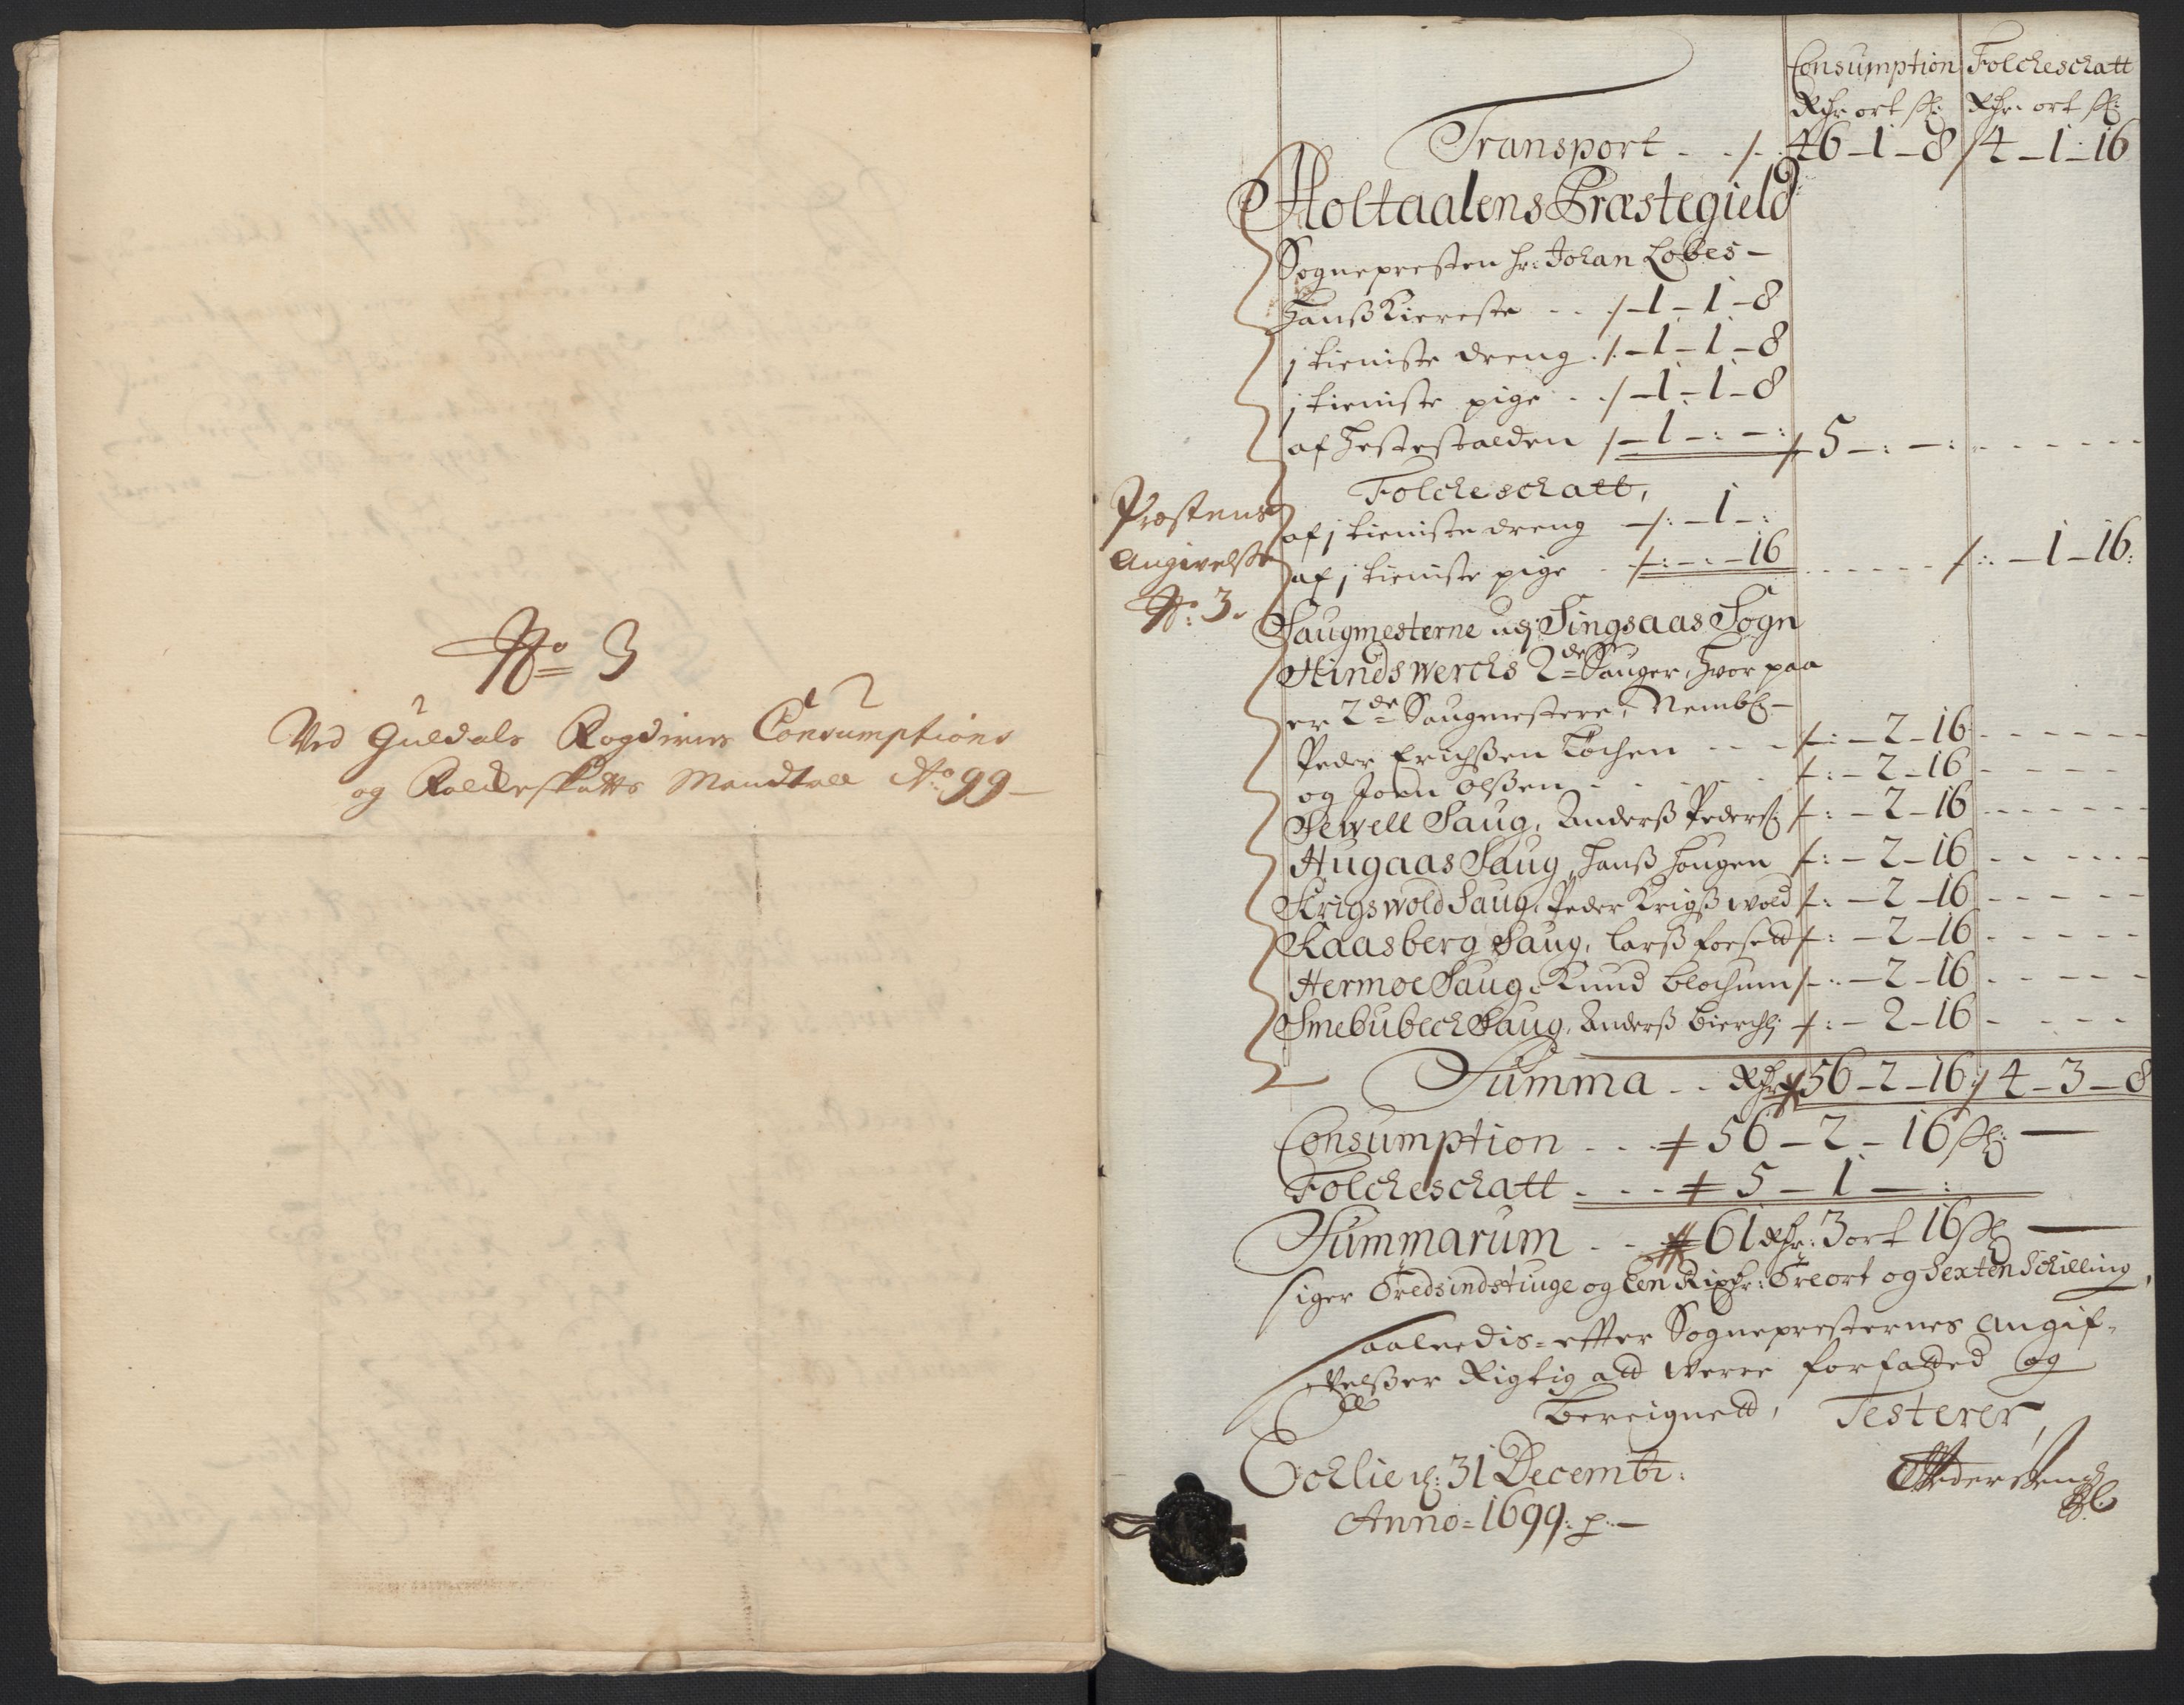 No 3
Ved Guldals Fogderies Consumptions
og Folckeskatts Mandtall Ao 99
Consumption Folckeschatt
Rdr ort ß: Rdr ort ß:
Transport - - /- 46 - 1 - 8 /4 - 1 - 16
Holtaalens Præstegield
Sognepresten hr: Johan Lobes -
Hanß Kiereste - - /- 1 - 1 - 8
j tieniste dreng /- 1 - 1 - 8
j tieniste pige - - /- 1 - 1 - 8
af Hestestalden /- 1 - : - : /- 5 - : - :
Folckeschatt,
Præstens
Angivelße
No: 3.
af j tieniste dreng -/: - 1 - :
af j tieniste pige - /: - : - 16 /: - 1 - 16:
Saugmesterne udj Singsaas Sogn
Hindswerchs 2de Sauger, Hvor paa
er 2de Saugmestere, Nembl: -
Peder Erichßen Kochen - - - /: - 2 - 16
og Joen Olßen - - - /: - 2 - 16
Sewell Saug, Anderß Pederß: /: - 2 - 16
Hugaas Saug, Hanß Hougen /: - 2 - 16
Krigswold Saug, Peder Krigßwold /: - 2 - 16
Kaasberg Saug, Larß forsett /: - 2 - 16
Hermoe Saug, Knud Blochum /: - 2 - 16
Smebubech Saug, Anderß Bierchlj /: - 2 - 16
Summa - - Rdr 56 - 2 - 16 / 4 - 3 - 8
Consumption - - - 56 - 2 - 16 ß:
Folckeschatt - - - 5 - 1 - :
Summarum - - 61 Rdr: 3 ort 16 ß
siger Tredsindstiuge og Een Rixdr: Tre ort og Sexten Schilling,
Saaledis efter Sognepresternes Angif-
velßer Rigtig att were forfatted og
bereignett, Testerer,
Eocklie d: 31 Decembr:
Anno = 1699: p: -